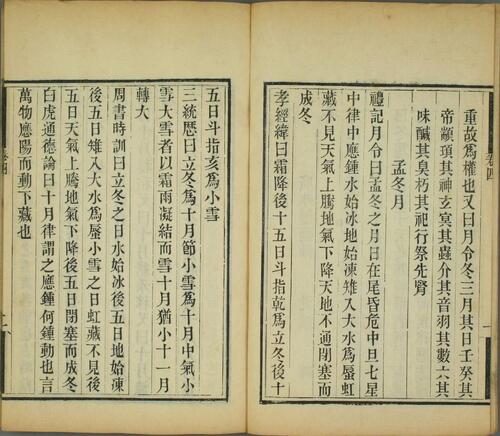 重故為權也又曰月令冬三月其日壬癸其
帝顓頊其神玄冥其蟲介其音羽其數六其
味鹹其臭朽其祀行祭先腎
孟冬月
禮記月令曰孟冬之月日在尾昏危中旦七星
中律中應鍾水始冰地始凍雉入大水爲蜃虹
藏不見天氣上騰地氣下降天地不通閉塞而
成冬
孝經緯曰霜降後十五日斗指乾爲立冬後十
五日斗指亥爲小雪
三統曆曰立冬爲十月節小雪爲十月中氣小
雪大雪者以霜雨凝結而雪十月猶小十一月
轉大
周書時訓曰立冬之日水始冰後五日地始凍
後五日雉入大水爲蜃小雪之日虹藏不見後
五日天氣上騰地氣下降後五日閉塞而成冬
白虎通德論曰十月律謂之應鍾何鍾動也言
萬物應陽而動下藏也